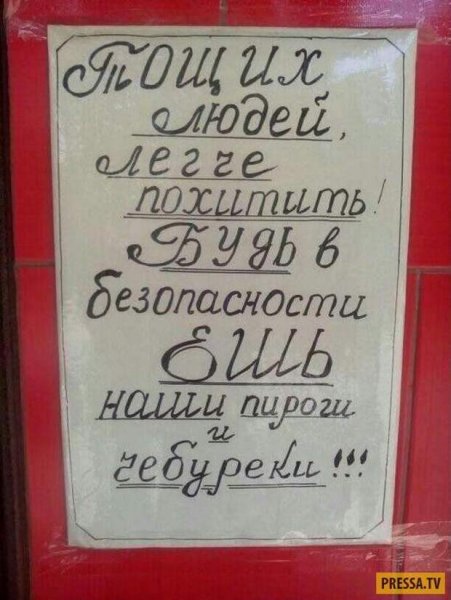 Тощих
людей,
легче
похитить!
Будь в
безопасности
ЕШЬ
наши пироги
и
чебуреки!!!
PRESSA.TV